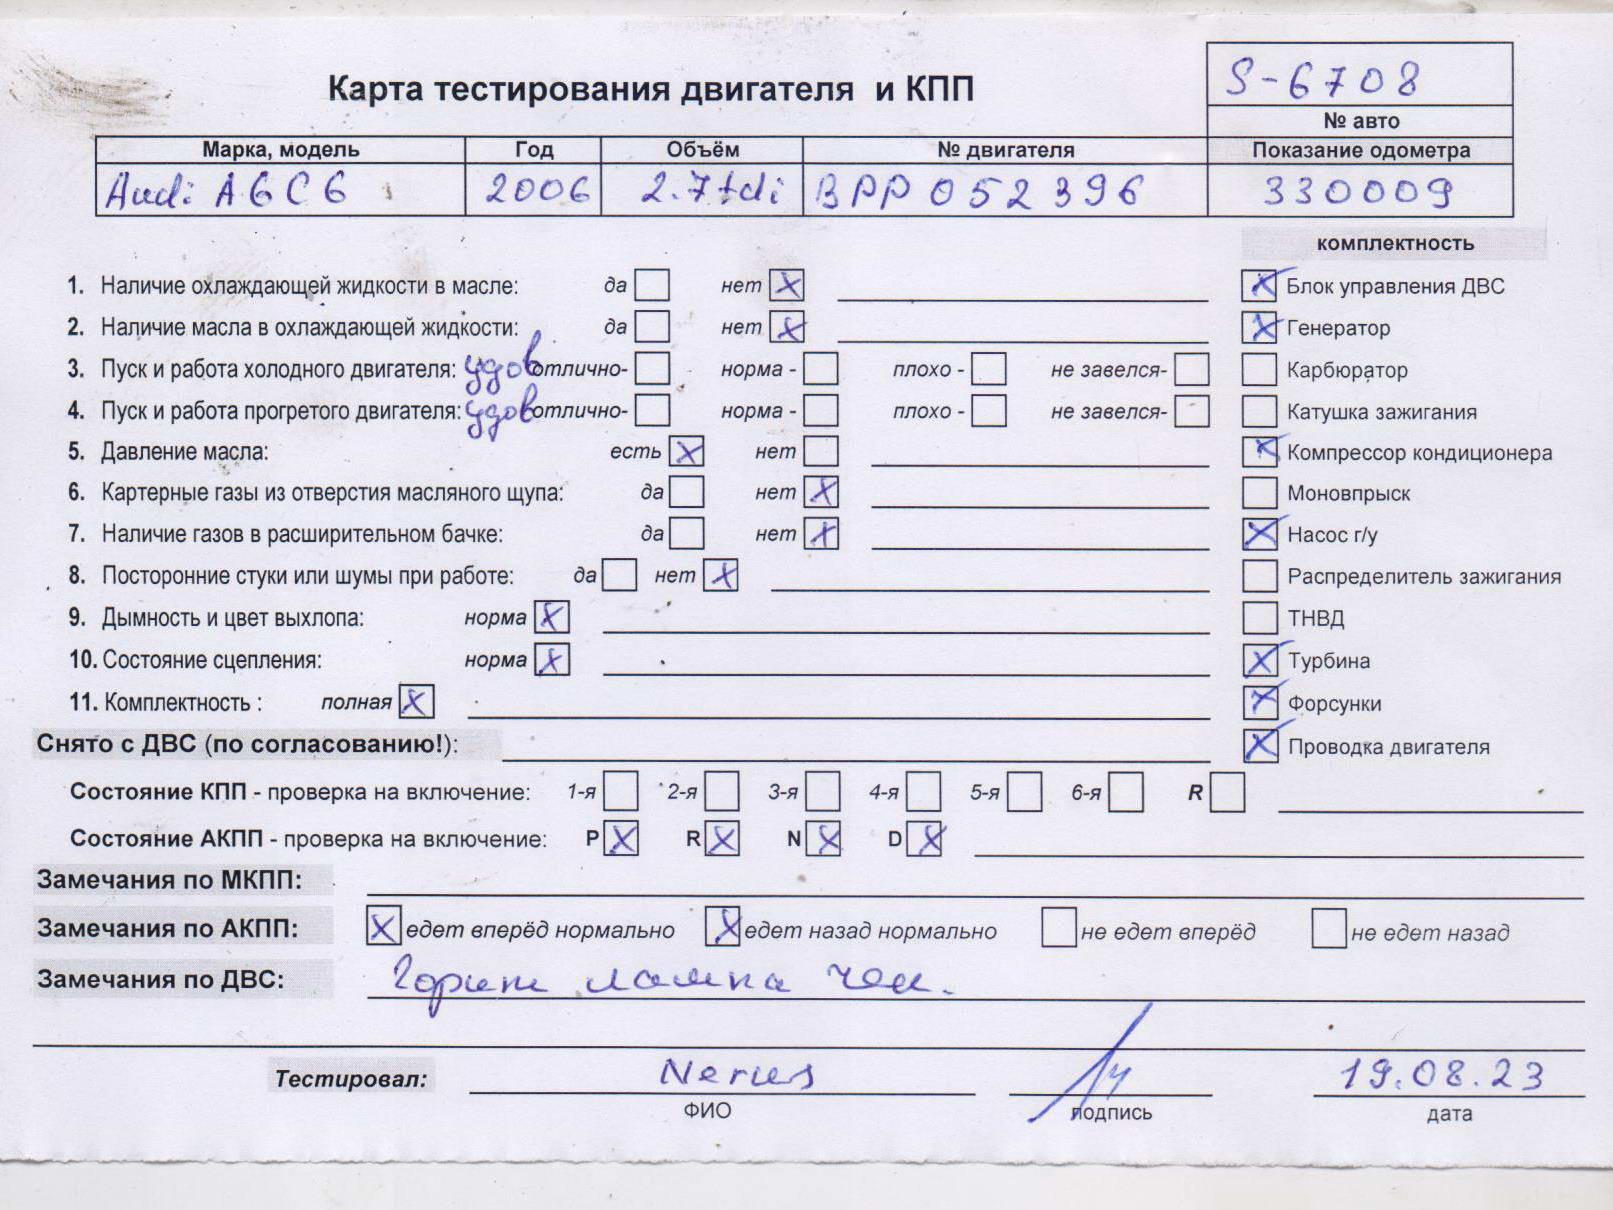 Карта тестирования двигателя и КПП
S-6708
№ авто
Марка, модель Год Объём № двигателя Показание одометра
Audi A6C6 2006 2.7tdi BPP 052396 330009
комплектность
1. Наличие охлаждающей жидкости в масле: да нет X X Блок управления ДВС
2. Наличие масла в охлаждающей жидкости: да нет X X Генератор
3. Пуск и работа холодного двигателя: удов отлично- норма - плохо - не завелся- Карбюратор
4. Пуск и работа прогретого двигателя: удов отлично- норма - плохо - не завелся- Катушка зажигания
5. Давление масла: есть X нет X Компрессор кондиционера
6. Картерные газы из отверстия масляного щупа: да нет X Моновпрыск
7. Наличие газов в расширительном бачке: да нет X X Насос г/у
8. Посторонние стуки или шумы при работе: да нет X Распределитель зажигания
9. Дымность и цвет выхлопа: норма X ТНВД
10. Состояние сцепления: норма X X Турбина
11. Комплектность : полная X X Форсунки
Снято с ДВС (по согласованию!): X Проводка двигателя
Состояние КПП - проверка на включение: 1-я 2-я 3-я 4-я 5-я 6-я R
Состояние АКПП - проверка на включение: P X R X N X D X
Замечания по МКПП:
Замечания по АКПП: X едет вперёд нормально X едет назад нормально не едет вперёд не едет назад
Замечания по ДВС: Горит лампа чек.
Тестировал: Nerus 19.08.23
ФИО подпись дата